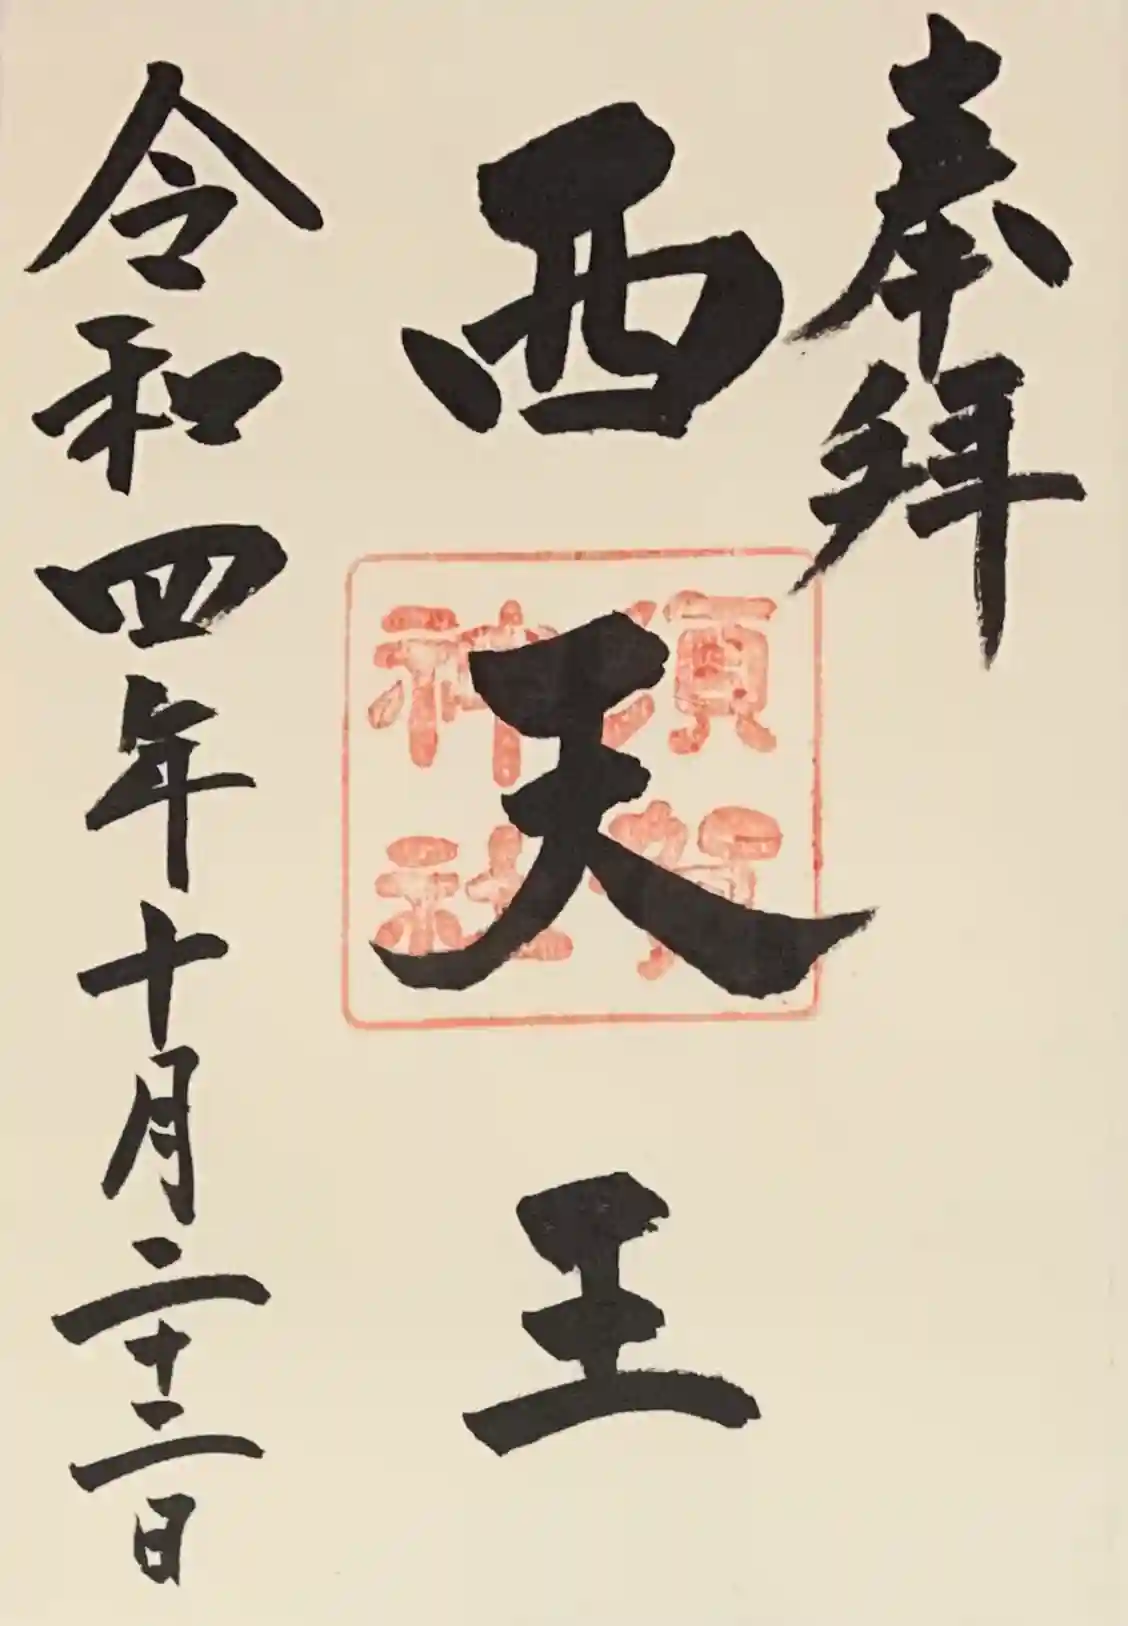 奉拝
西天王
須賀
神社
令和四年十月二十二日